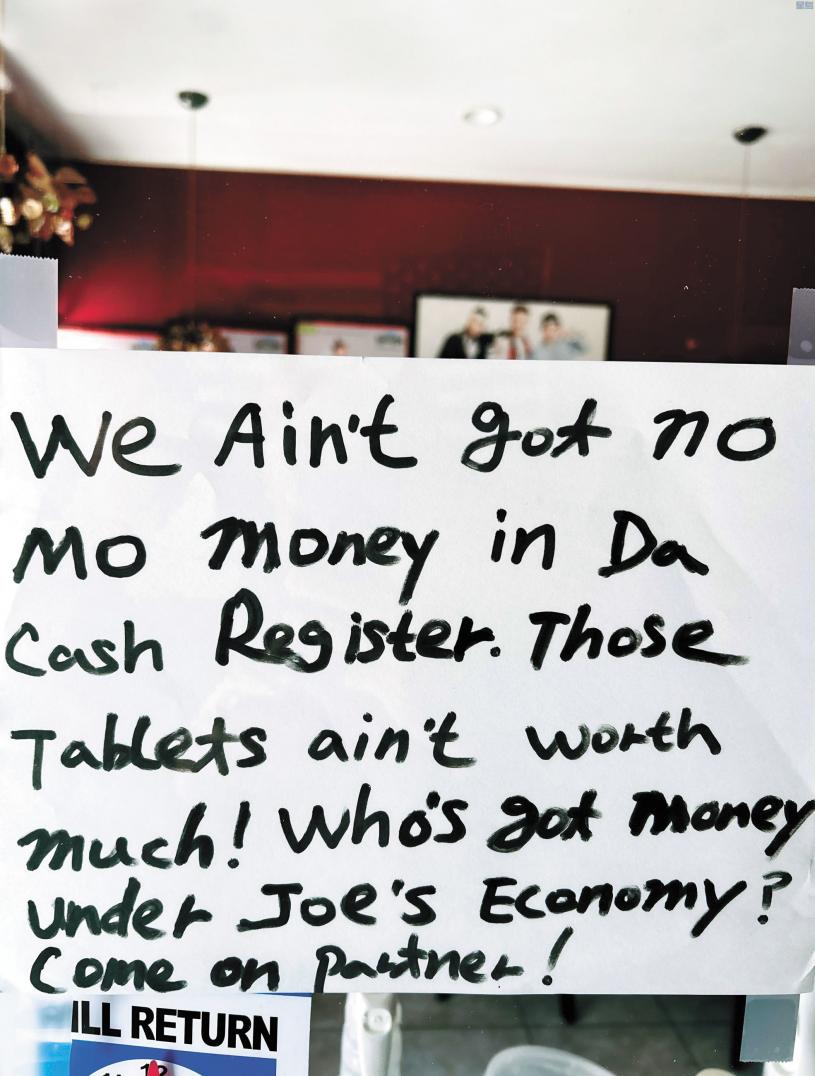 We Ain't got no
Mo money in Da
Cash Register. Those
Tablets ain't worth
much! Who's got money
under Joe's Economy?
Come on partner!
ILL RETURN
12